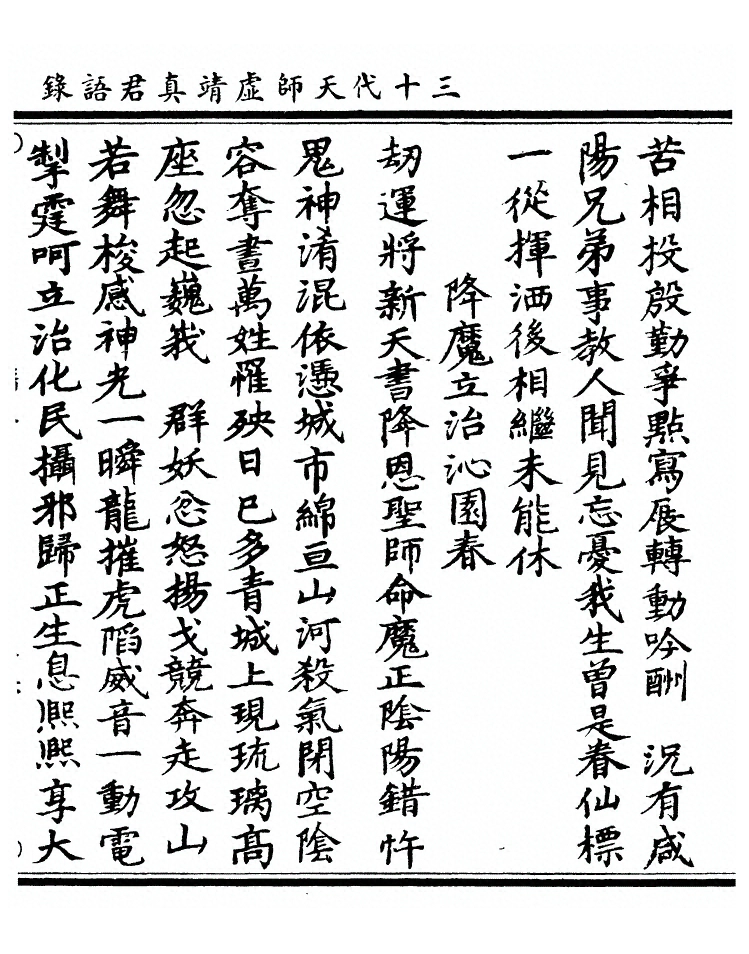 三十代天師虛靖真君語錄
苦相投殷勤爭點寫展轉動吟酬　況有咸
陽兄弟事教人聞見忘憂我生曾是眷仙標
一從揮洒後相繼未能休
降魔立治沁園春
劫運將新天書降恩聖師命魔正陰陽錯忤
鬼神淆混依憑城市綿亘山河殺氣閉空陰
容奪晝萬姓罹殃日已多青城上現琉璃高
座忽起巍峩　群妖忿怒揚戈競奔走攻山
若舞梭感神光一瞬龍摧虎陷威音一動電
掣霆呵立治化民攝邪歸正生息熈熈享大